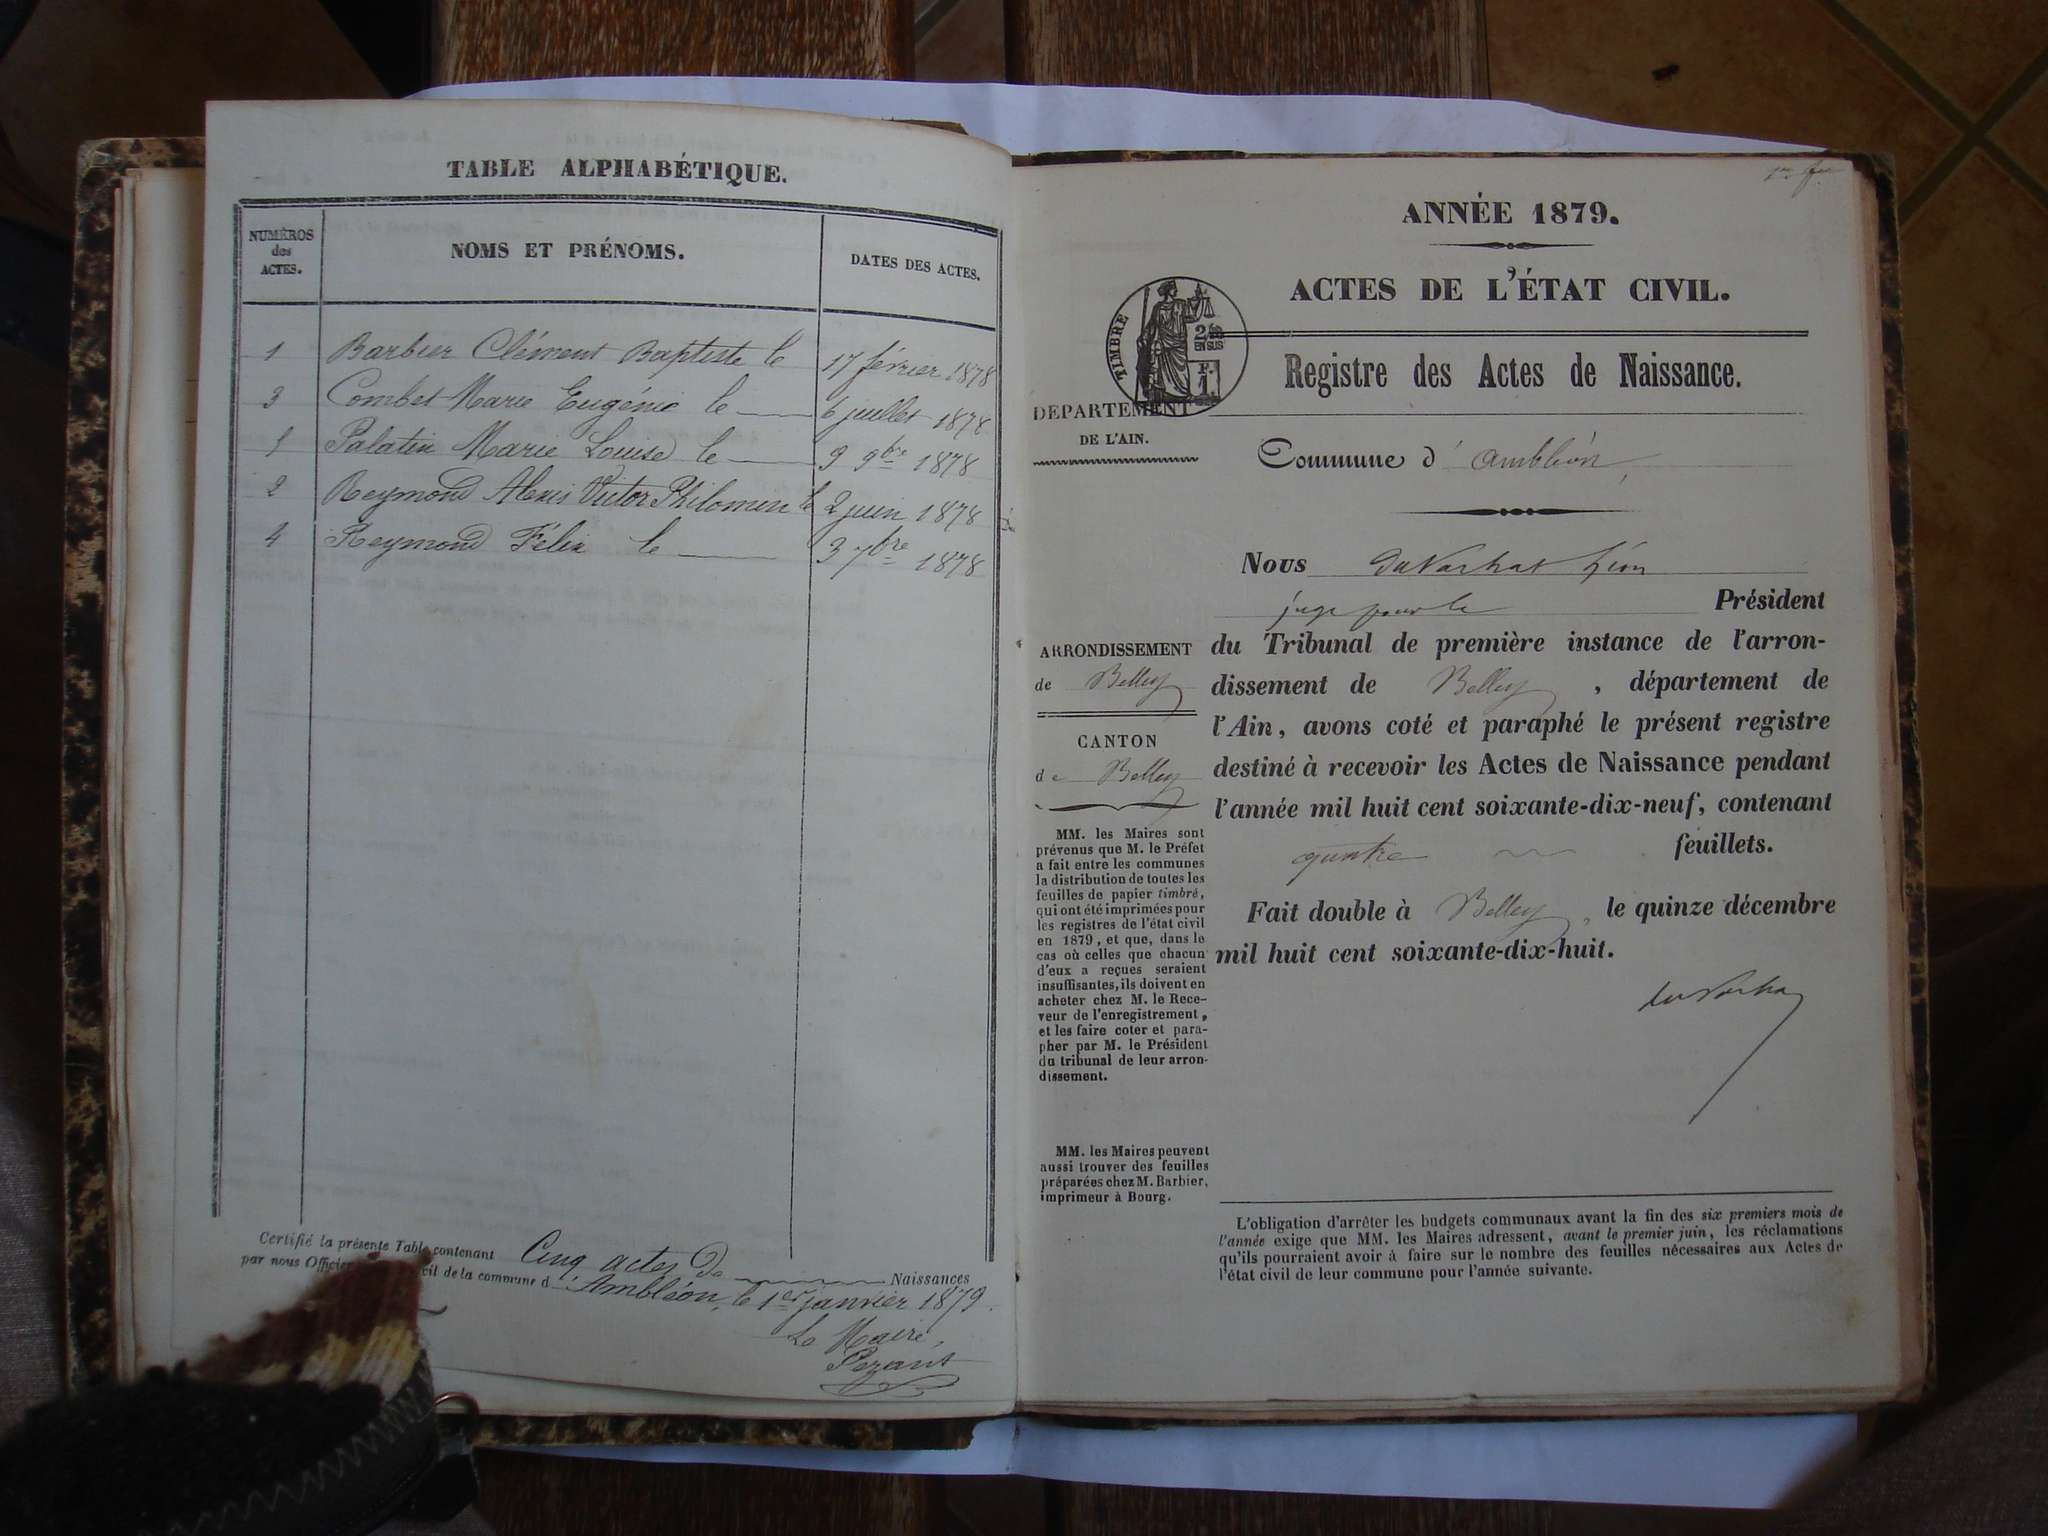 TABLE ALPHABÉTIQUE.
NUMÉROS
des
ACTES.
NOMS ET PRÉNOMS.
DATES DES ACTES.
1 Barbier Clément Baptiste le 17 février 1878
3 Combet Marie Eugénie le 6 juillet 1878
1 Palatin Marie Louise le 9 9bre 1878
2 Reymond Alexis Victor Philomen le 2 juin 1878
4 Reymond Félix le 3 7bre 1878
Certifié la présente Table contenant Cinq actes de Naissances
par nous Officier civil de la commune d'Ambléon, le 1er janvier 1879.
Le Maire,
Pezant
ANNÉE 1879.
ACTES DE L'ÉTAT CIVIL.
TIMBRE
2/10
EN SUS
F.
1
Registre des Actes de Naissance.
DEPARTEMENT
DE L'AIN.
Commune d'Ambléon
Nous Léon
juge pour le Président
du Tribunal de première instance de l'arron-
dissement de Belley, département de
l'Ain, avons coté et paraphé le présent registre
destiné à recevoir les Actes de Naissance pendant
l'année mil huit cent soixante-dix-neuf, contenant
quatre feuillets.
Fait double à Belley, le quinze décembre
mil huit cent soixante-dix-huit.
ARRONDISSEMENT
de Belley
CANTON
de Belley
MM. les Maires sont
prévenus que M. le Préfet
a fait entre les communes
la distribution de toutes les
feuilles de papier timbré,
qui ont été imprimées pour
les registres de l'état civil
en 1879, et que, dans le
cas où celles que chacun
d'eux a reçues seraient
insuffisantes, ils doivent en
acheter chez M. le Rece-
veur de l'enregistrement,
et les faire coter et para-
pher par M. le Président
du tribunal de leur arron-
dissement.
MM. les Maires peuvent
aussi trouver des feuilles
préparées chez M. Barbier,
imprimeur à Bourg.
L'obligation d'arrêter les budgets communaux avant la fin des six premiers mois de
l'année exige que MM. les Maires adressent, avant le premier juin, les réclamations
qu'ils pourraient avoir à faire sur le nombre des feuilles nécessaires aux Actes de
l'état civil de leur commune pour l'année suivante.